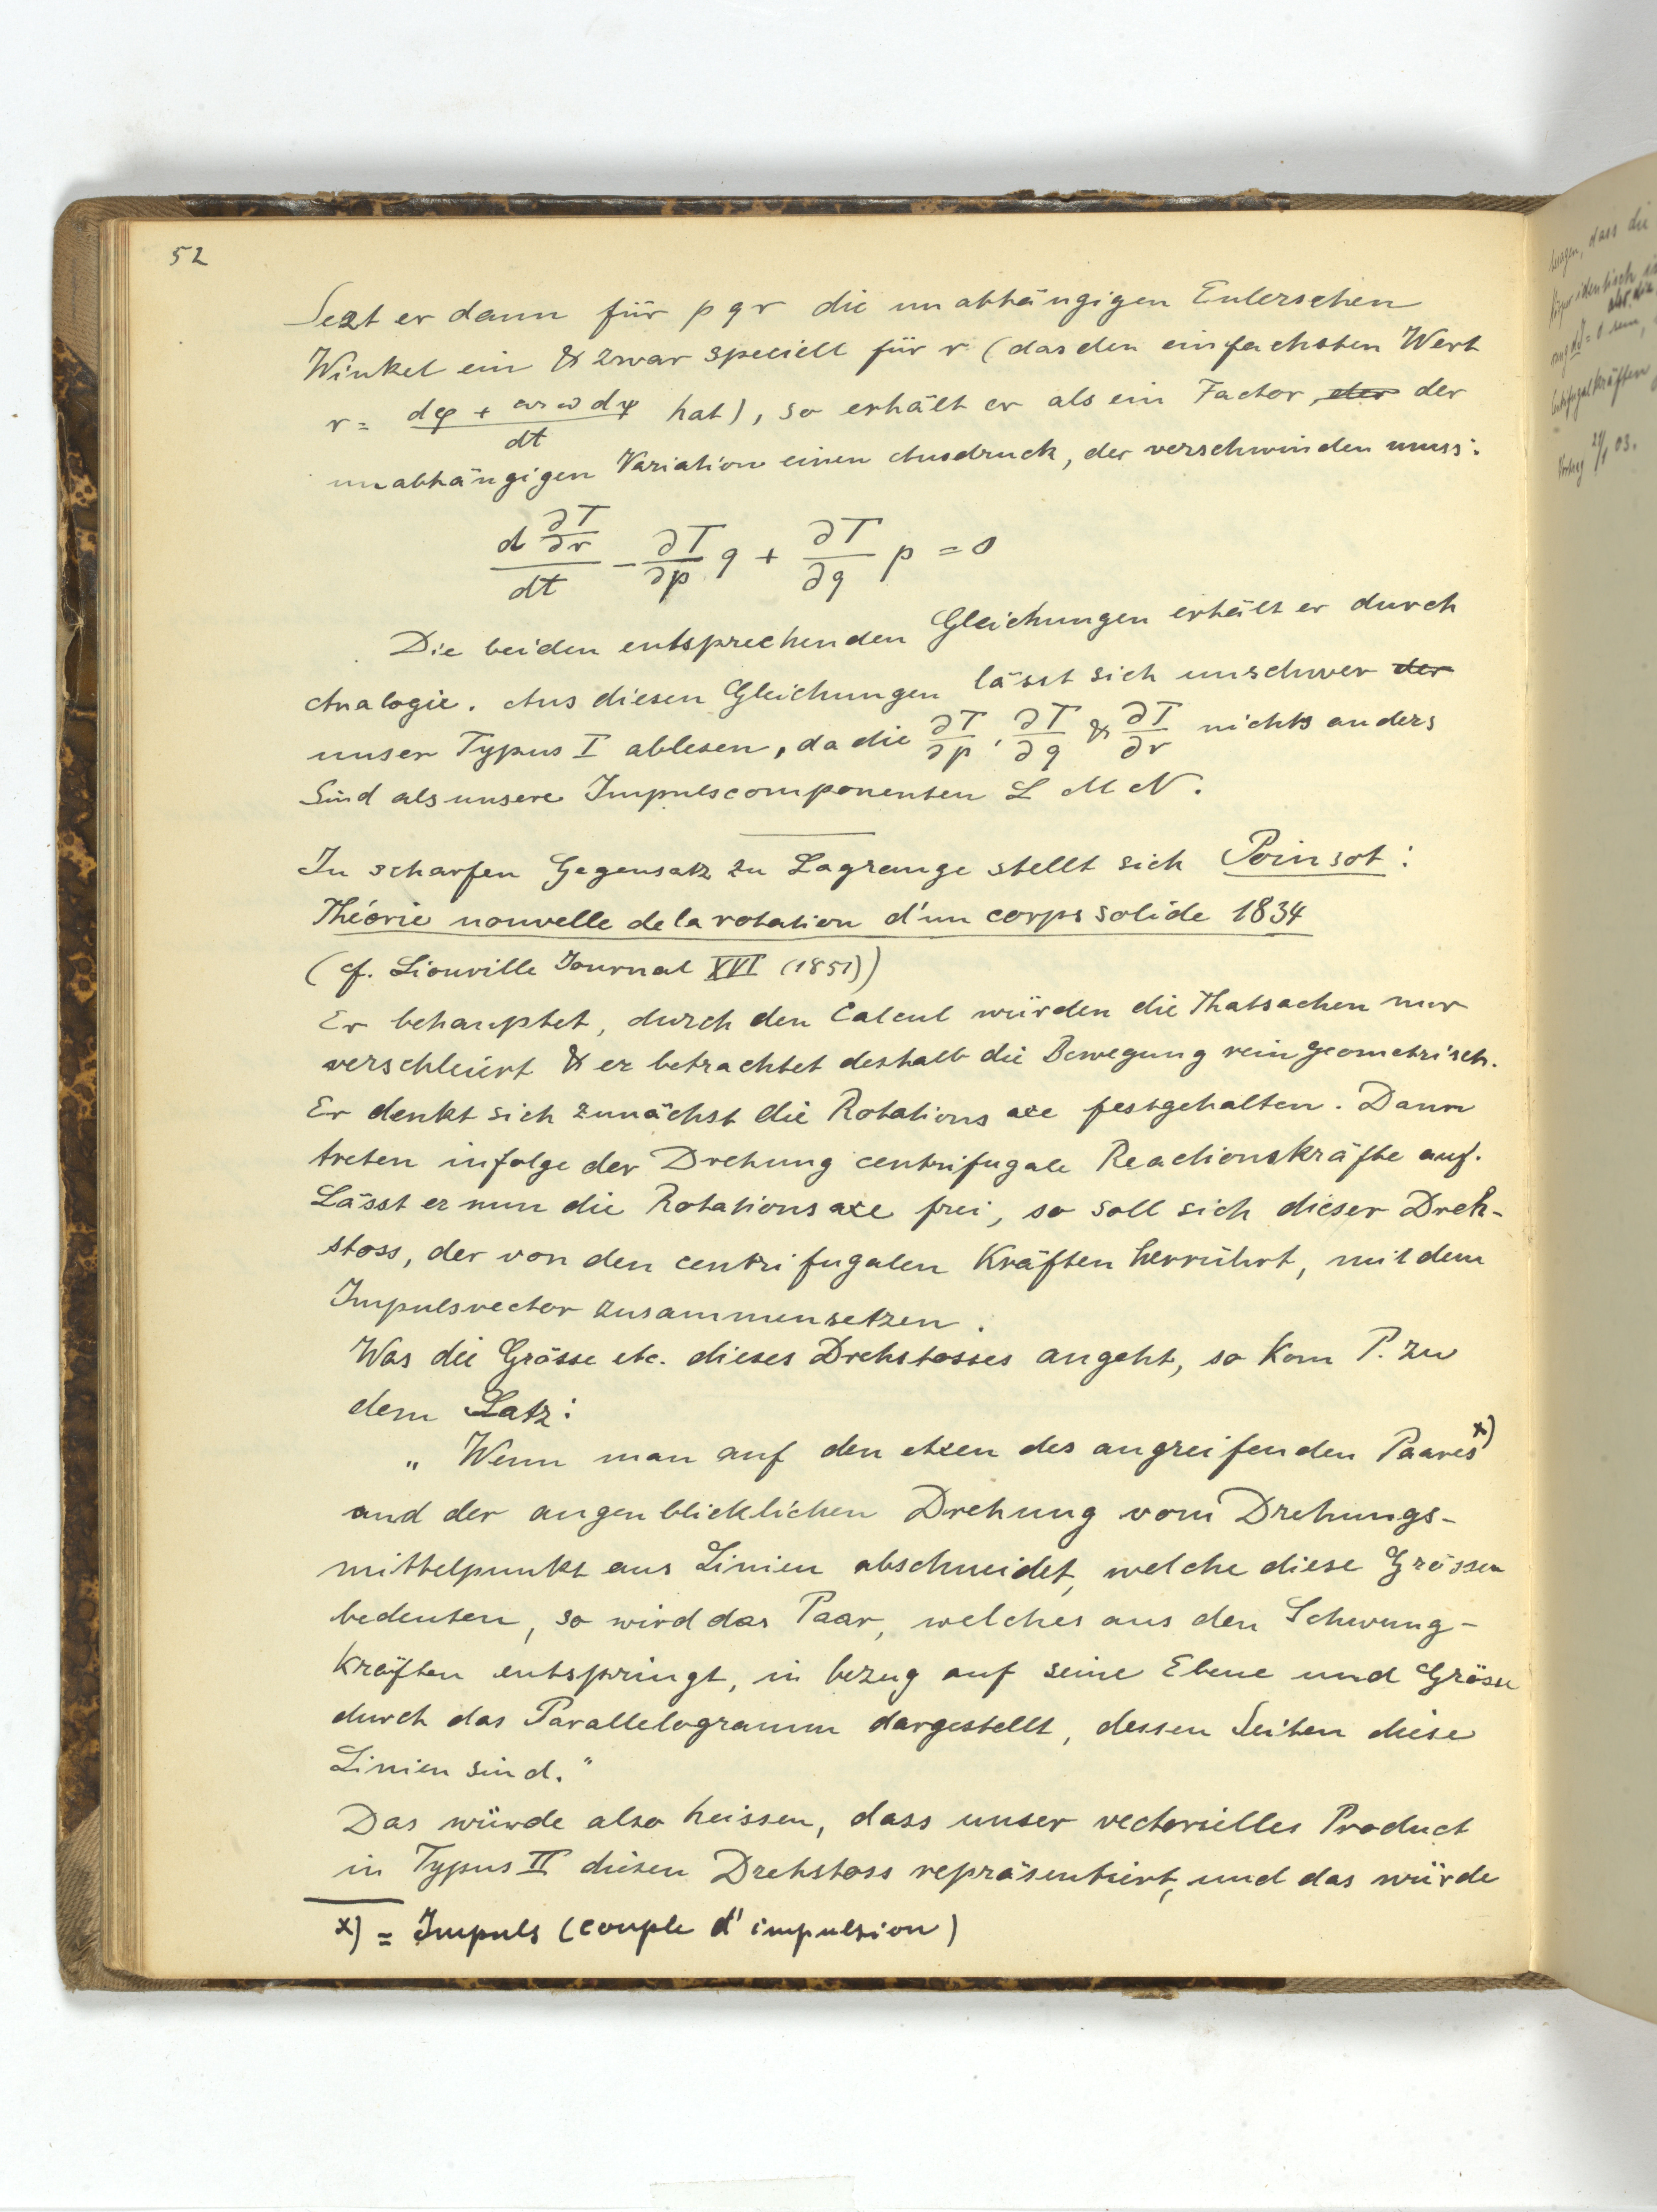 52
Sezt er dann für p q r die unabhängigen Eulerschen
Winkel ein & zwar speciell für r (das den einfachsten Wert
r = (dφ + cos ω dψ)/dt hat), so erhält er als ein Factor, der der
unabhängigen Variation einen Ausdruck, der verschwinden muss:
d ∂T/∂r / dt − ∂T/∂p q + ∂T/∂q p = 0
Die beiden entsprechenden Gleichungen erhält er durch
Analogie. Aus diesen Gleichungen lässt sich unschwer der
unser Typus I ablesen, da die ∂T/∂p, ∂T/∂q & ∂T/∂r nichts anders
Sind als unsere Impulscomponenten L M N.
In scharfen Gegensatz zu Lagrange stellt sich Poinsot:
Théorie nouvelle de la rotation d'un corps solide 1834
(cf. Liouville Journal XVI (1851))
Er behauptet, durch den Calcul würden die Thatsachen nur
verschleiert & er betrachtet deshalb die Bewegung rein geometrisch.
Er denkt sich zunächst die Rotations axe festgehalten. Dann
treten infolge der Drehung centrifugale Reactionskräfte auf.
Lässt er nun die Rotationsaxe frei, so soll sich dieser Dreh-
stoss, der von den centrifugalen Kräften herrührt, mit dem
Impulsvector zusammensetzen.
Was die Grösse etc. dieses Drehstosses angeht, so kom P. zu
dem Satz:
„ Wenn man auf den Axen des angreifenden Paares x)
und der augenblicklichen Drehung vom Drehungs-
mittelpunkt aus Linien abschneidet, welche diese Grössen
bedeuten, so wird das Paar, welches aus den Schwung-
kräften entspringt, in bezug auf seine Ebene und Grösse
durch das Parallelogramm dargestellt, dessen Seiten diese
Linien sind."
Das würde also heissen, dass unser vectorielles Product
in Typus II diesen Drehstoss repräsentiert, und das würde
x) = Impuls (couple d'impulsion)
dass die
identisch
= 0 sein,
kräften
03.